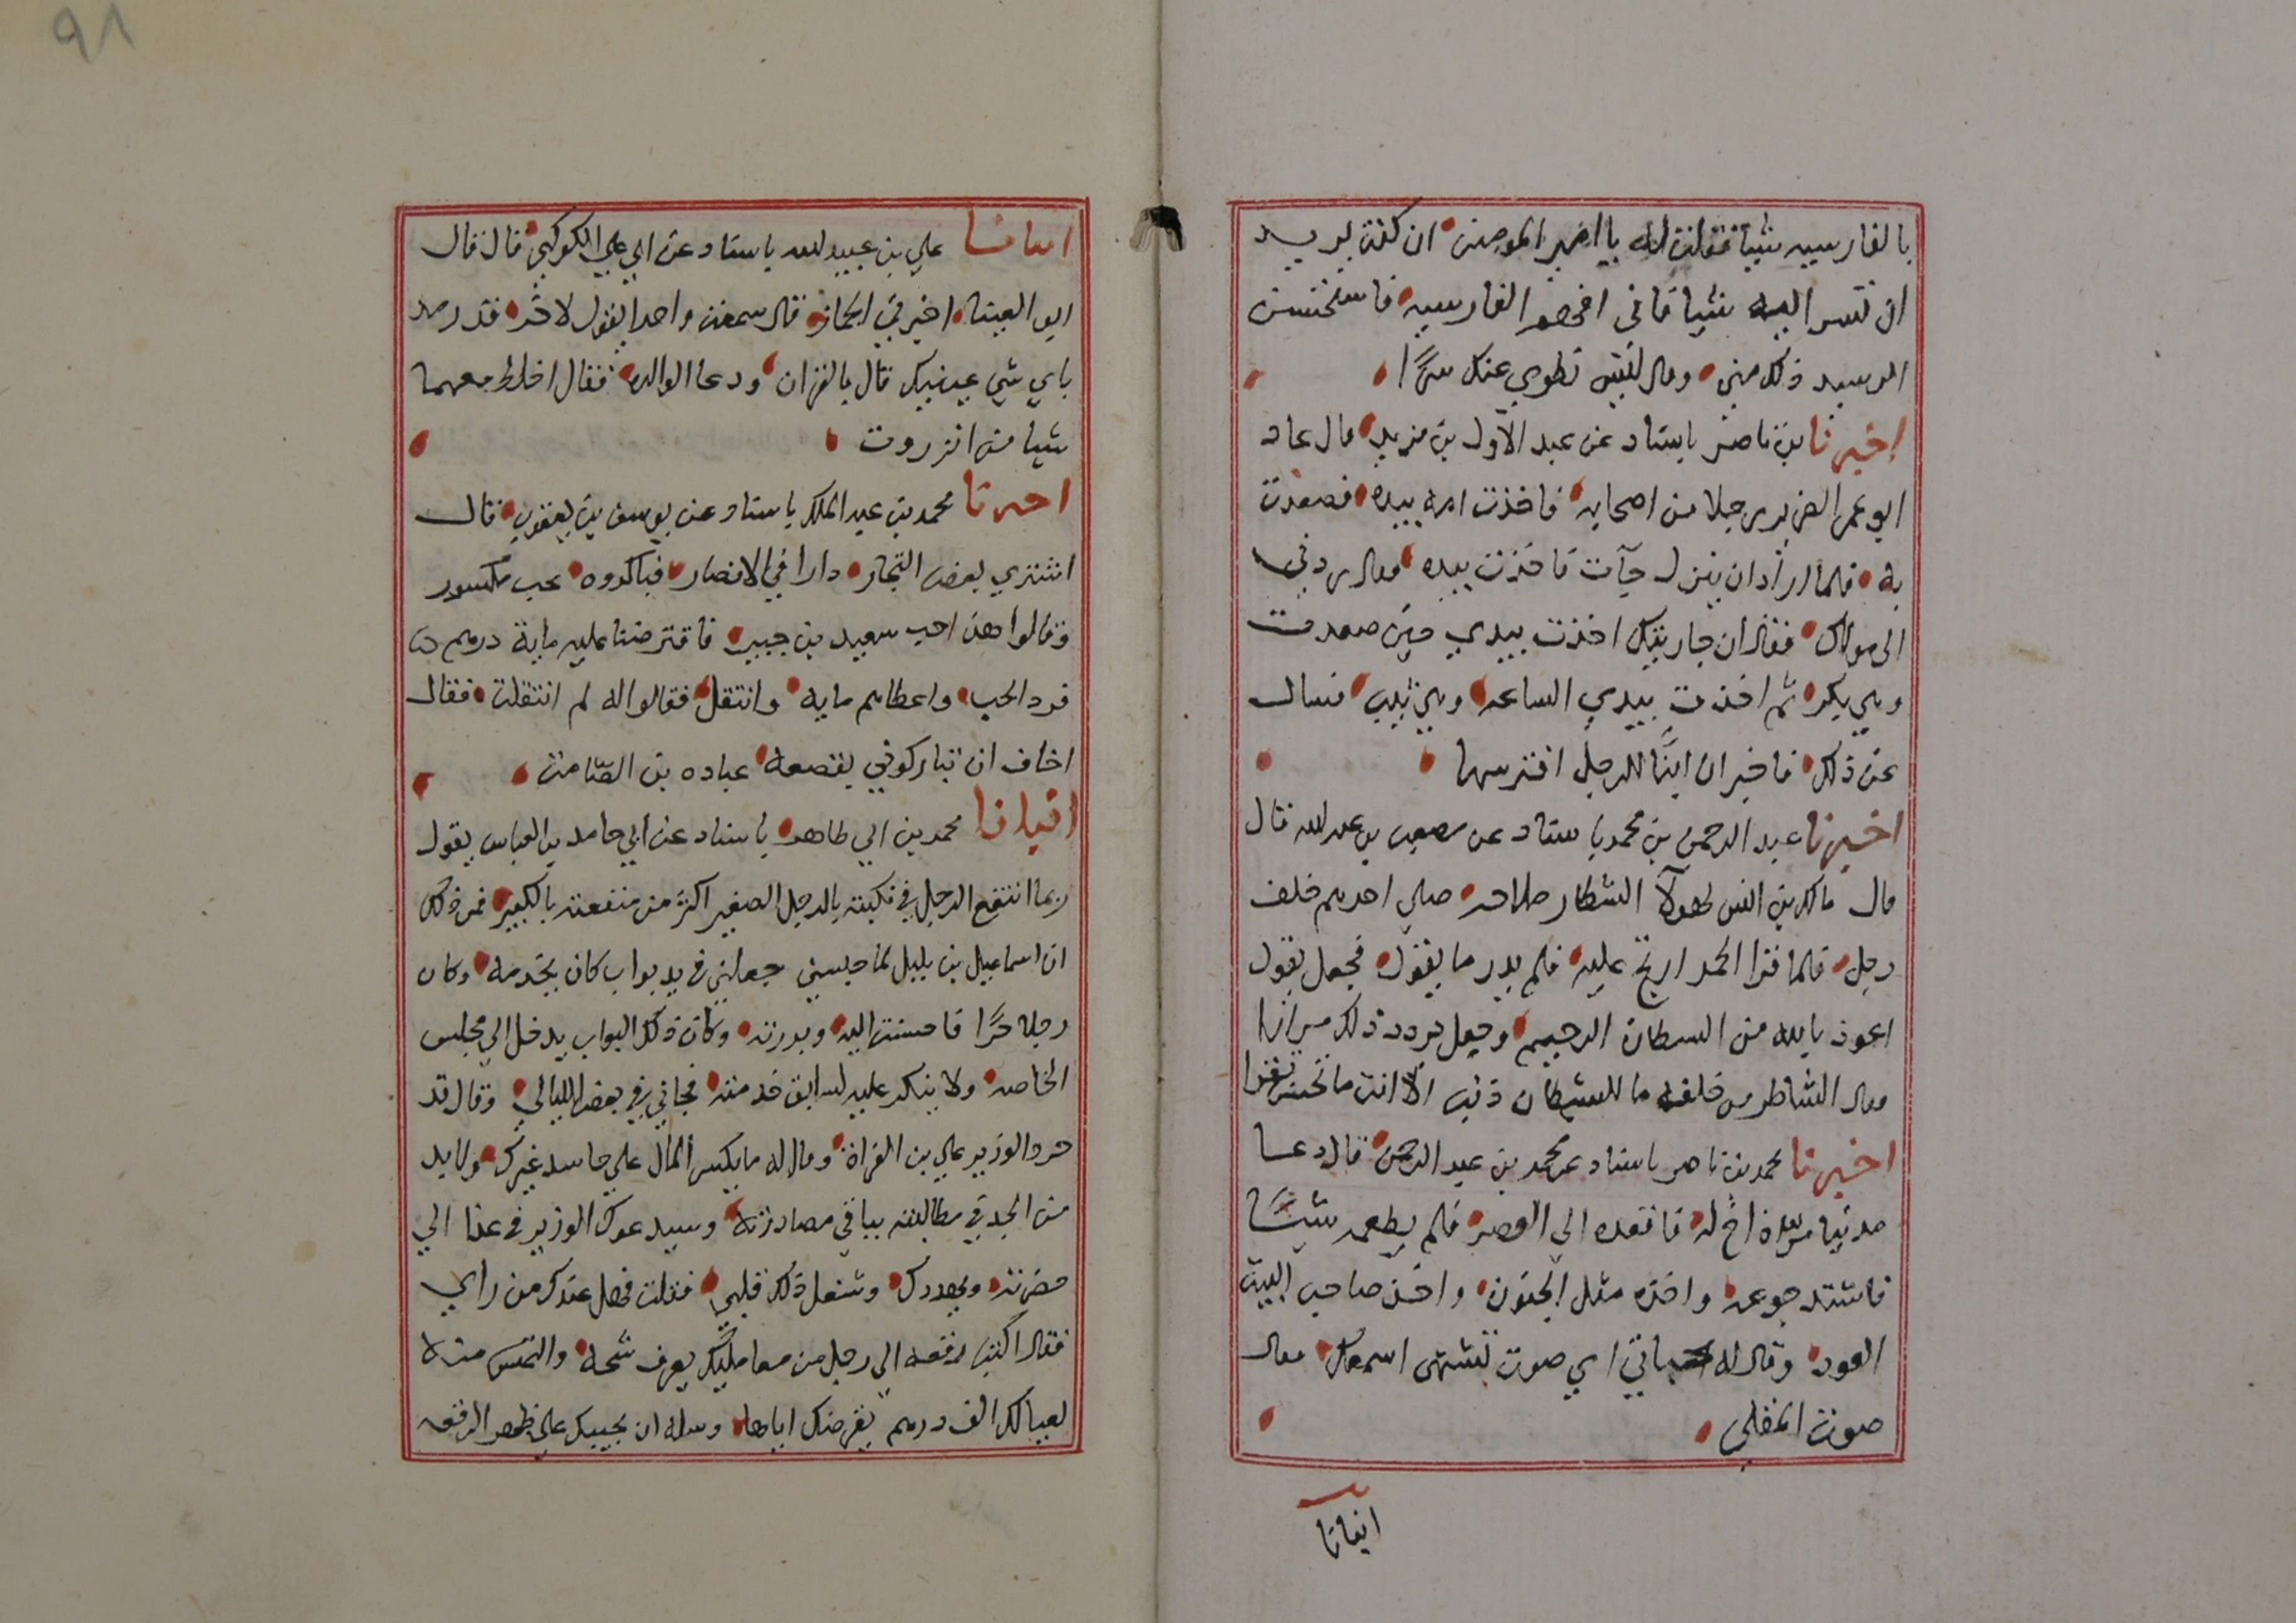 بالفارسيه شيا فقلت له يا امير المومنين ان كنت تريد
ان تسر اليه شيا فاني افهم الفارسيه فاستحسن
الرسيد ذلك مني وقال ليس تطوي عنك سرًا
اخبرنا بن ناصر باسناد عن عبد الاول بن مزيد قال عاد
ابو عمر الضرير رجلا من اصحابه فاخذت امه بيده فصعدت
به فلما اراد ان ينزل جآت فاخذت بيده فقال ردني
الى مولاك فقال ان جاريتك اخذت بيدي حين صعدت
وهي بكر ثم اخذت بيدي الساعه وهي ثيب فسال
عن ذلك فاخبر ان ابنًا للرجل افترسها
اخبرنا عبد الرحمن بن محمد باسناد عن مصعب بن عبد الله قال
قال مالك بن انس لهولآ الشطار ملاحه صلي احدهم خلف
رجل فلما قرا الحمد ارتج عليه فلم يدر ما يقول فجعل يقول
اعوذ بالله من السطان الرجيم وجعل يردد ذلك مرارا
فقال الشاطر من خلفه ما للشيطان ذنب الا انت ما تحسن تقرا
اخبرنا محمد بن ناصر باسناد عن محمد بن عبد الرحمن قال دعا
مدنيا مره اخ له فاقعده الي العصر فلم يطعمه شيًا
فاشتد جوعه واخذه مثل الجنون واخذ صاحب البيت
العود وقال له بحياتي اي صوت تشتهى اسمعك فقال
صوت المقلى
انبانا
٩٨
انبانا علي بن عبيد الله باسناد عن ابي علي الكوكبي قال قال
ابو العينا اخبرني الجماز قال سمعت واحدا يقول لاخر قد رمد
باي شي عينيك قال بالقران ودعا الوالده فقال اخلط معهما
شيا من انزروت
اخبرنا محمد بن عبد الملك باسناد عن يوسف بن يعقوب قال
اشتري بعض التجار دارا في الانصار فباكروه بحب مكسور
وقالوا هذا حب سعيد بن جبير فاقترضنا عليه ماية درهم
فرد الحب واعطاهم مايه وانتقل فقالوا له لم انتقلت فقال
اخاف ان تباركوني بقصعة عباده بن الصامت
انبانا محمد بن ابي طاهر باسناد عن ابي حامد بن العباس يقول
ربما انتفع الرجل في نكبته بالرجل الصغير اكثر من منفعته بالكبير فمن ذلك
ان اسماعيل بن بلبل لما حبسني جعلني في يد بواب كان يخدمه وكان
رجلا حرًا فاحسنت اليه وبررته وكان ذلك البواب يدخل الي مجلس
الخاصه ولا ينكر عليه لسابق خدمته فجاني في بعض الليالي وقال قد
حرد الوزير علي بن الفراة وقال له ما يكسر المال علي حاسد غيرك ولابد
من الجد في مطالبته بباقي مصادرته وسيدعوك الوزير في غدا الي
حضرته ويهددك وشغل ذلك قلبي فقلت فهل عندك من راي
فقال اكتب رقعه الي رجل من معامليك يعرف شحه والتمس منه
لعيالك الف درهم يقرضك اياها وسله ان يجيبك علي ظهر الرقعه